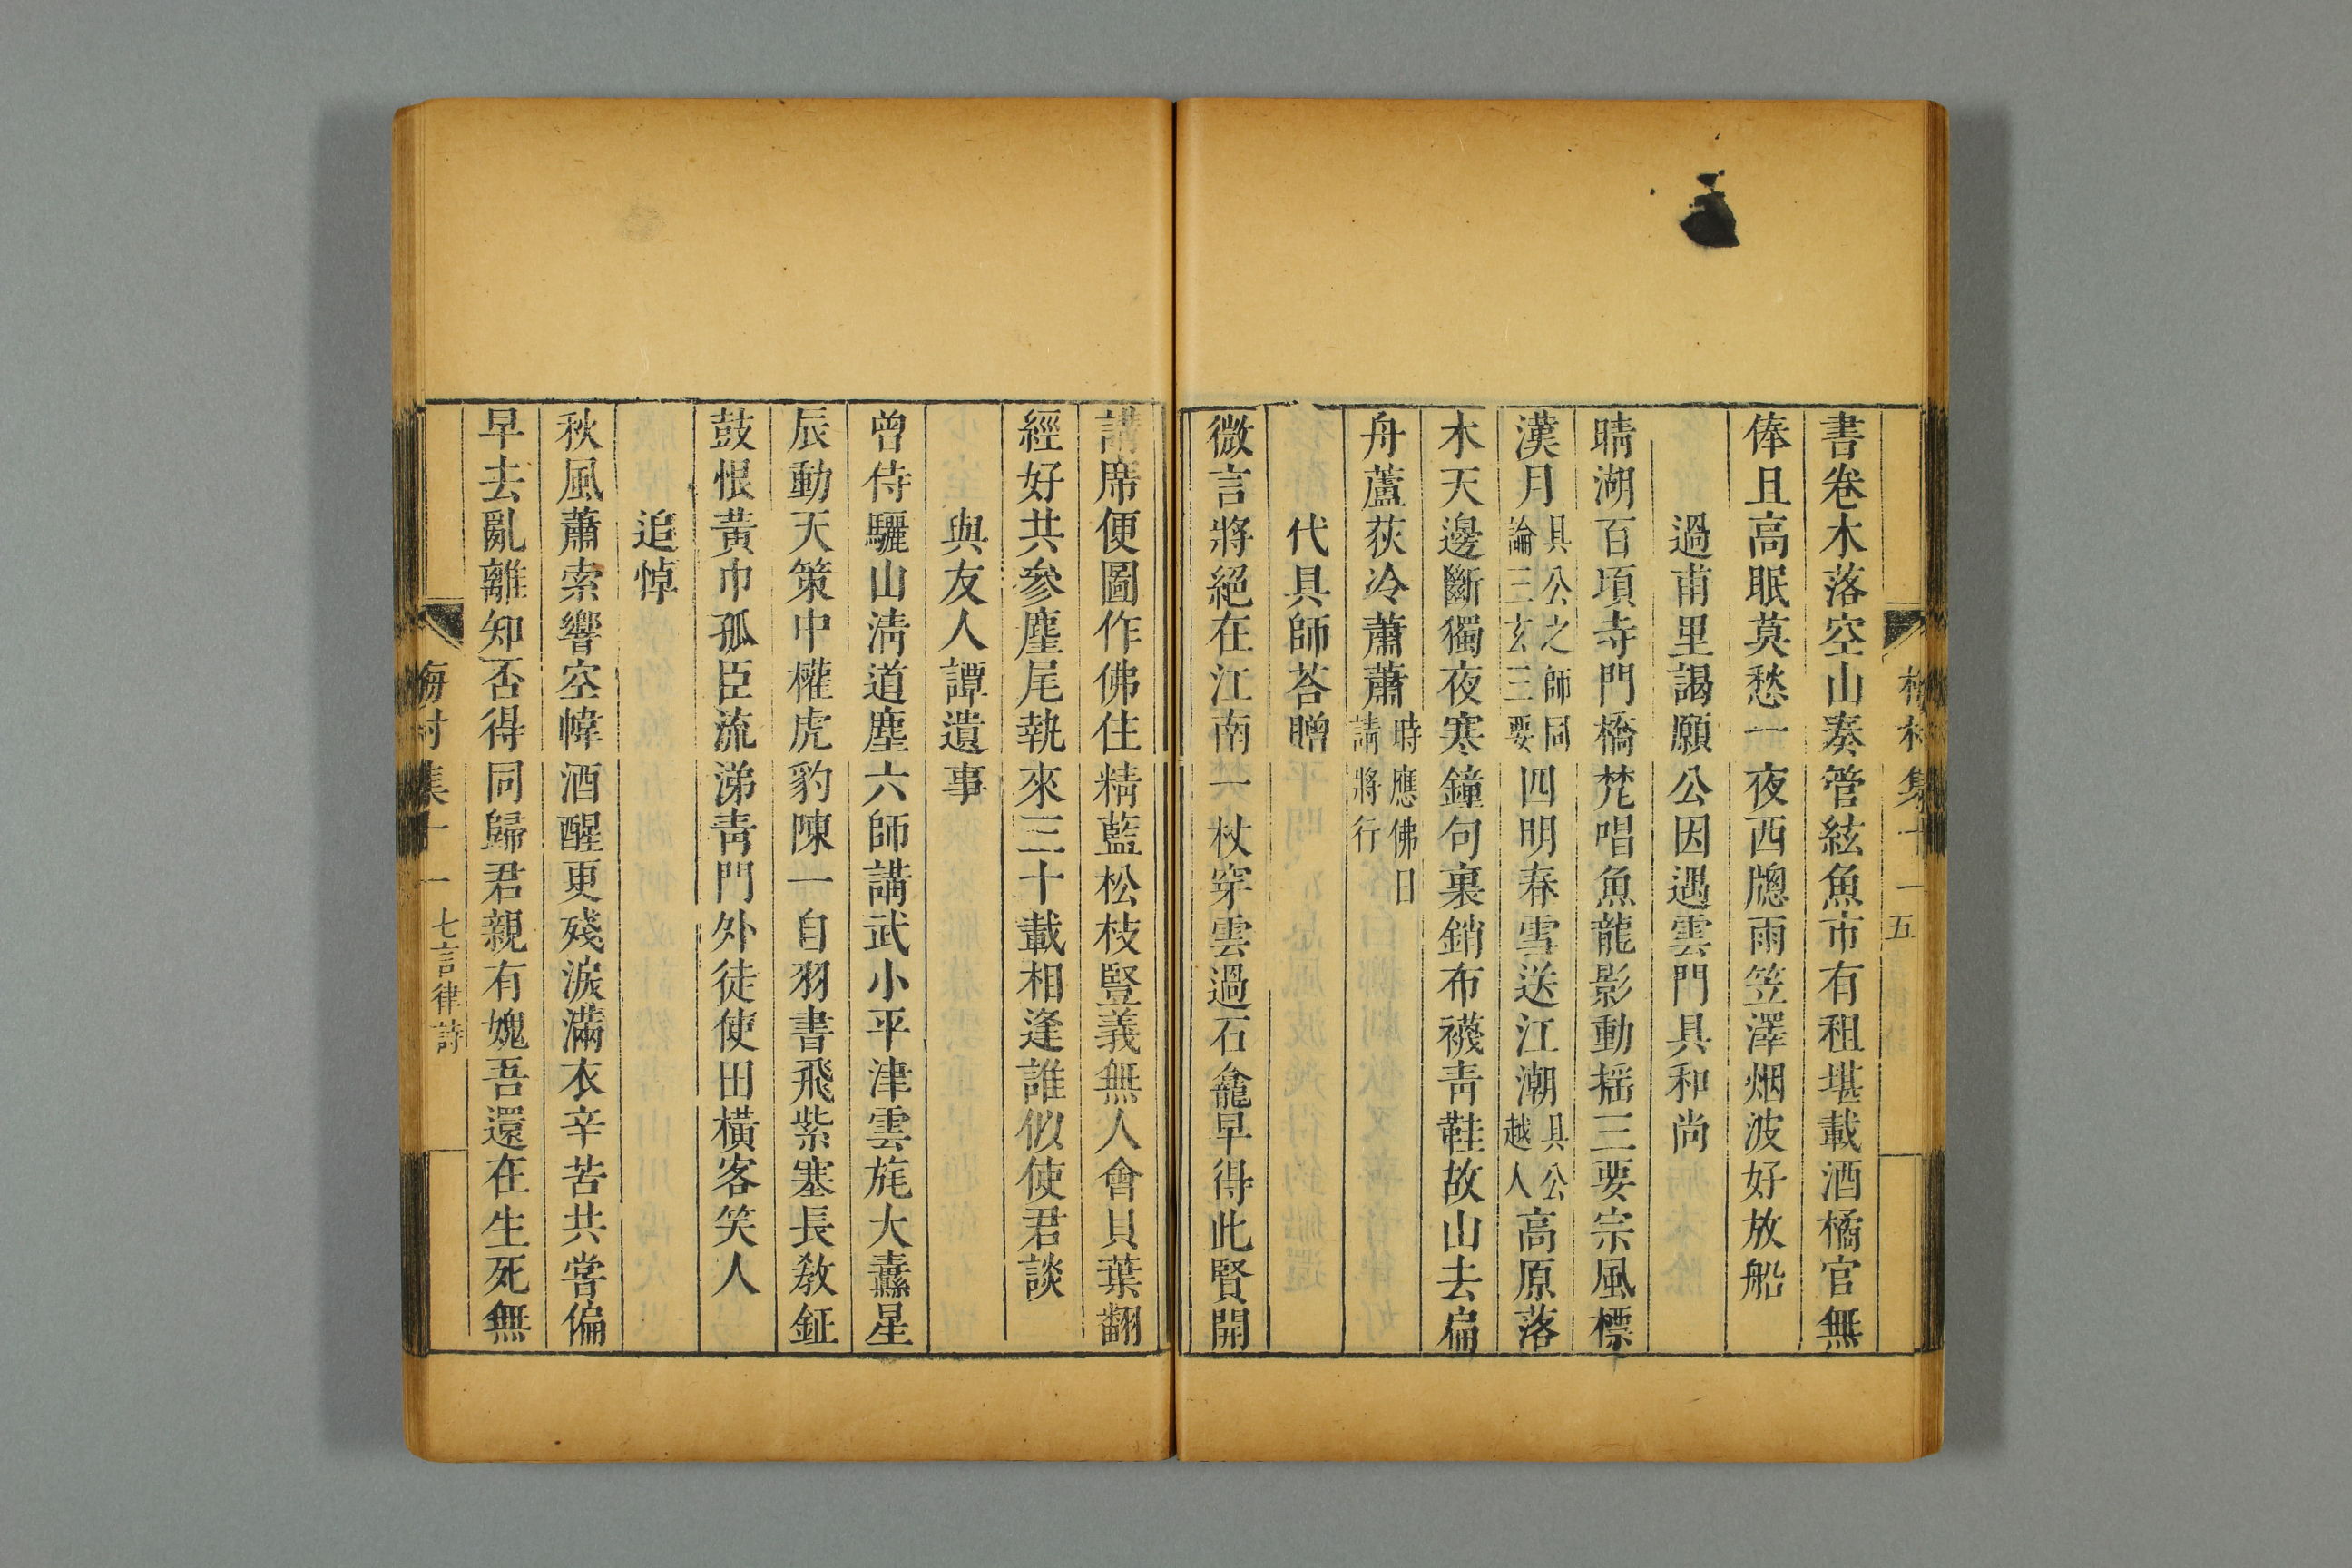 書卷木落空山奏管絃魚市有租堪載酒橘官無
俸且高眠莫愁一夜西牕雨笠澤烟波好放船
過甫里謁願公因遇雲門具和尚
晴湖百頃寺門橋梵唱魚龍影動搖三要宗風標
漢月具公之師同論三玄三要四明春雪送江潮具公越人高原落
木天邊斷獨夜寒鐘句裏銷布襪青鞋故山去扁
舟蘆荻冷蕭蕭時應佛日請將行
代具師荅贈
微言將絕在江南一杖穿雲過石龕早得此賢開
講席便圖作佛住精藍松枝豎義無人會貝葉翻
經好共參麈尾執來三十載相逢誰似使君談
與友人譚遺事
曾侍驪山清道塵六師講武小平津雲旄大纛星
辰動天策中權虎豹陳一自羽書飛紫塞長教鉦
鼓恨黃巾孤臣流涕青門外徒使田橫客笑人
追悼
秋風蕭索響空幃酒醒更殘淚滿衣辛苦共嘗偏
早去亂離知否得同歸君親有媿吾還在生死無
梅村集十一 七言律詩